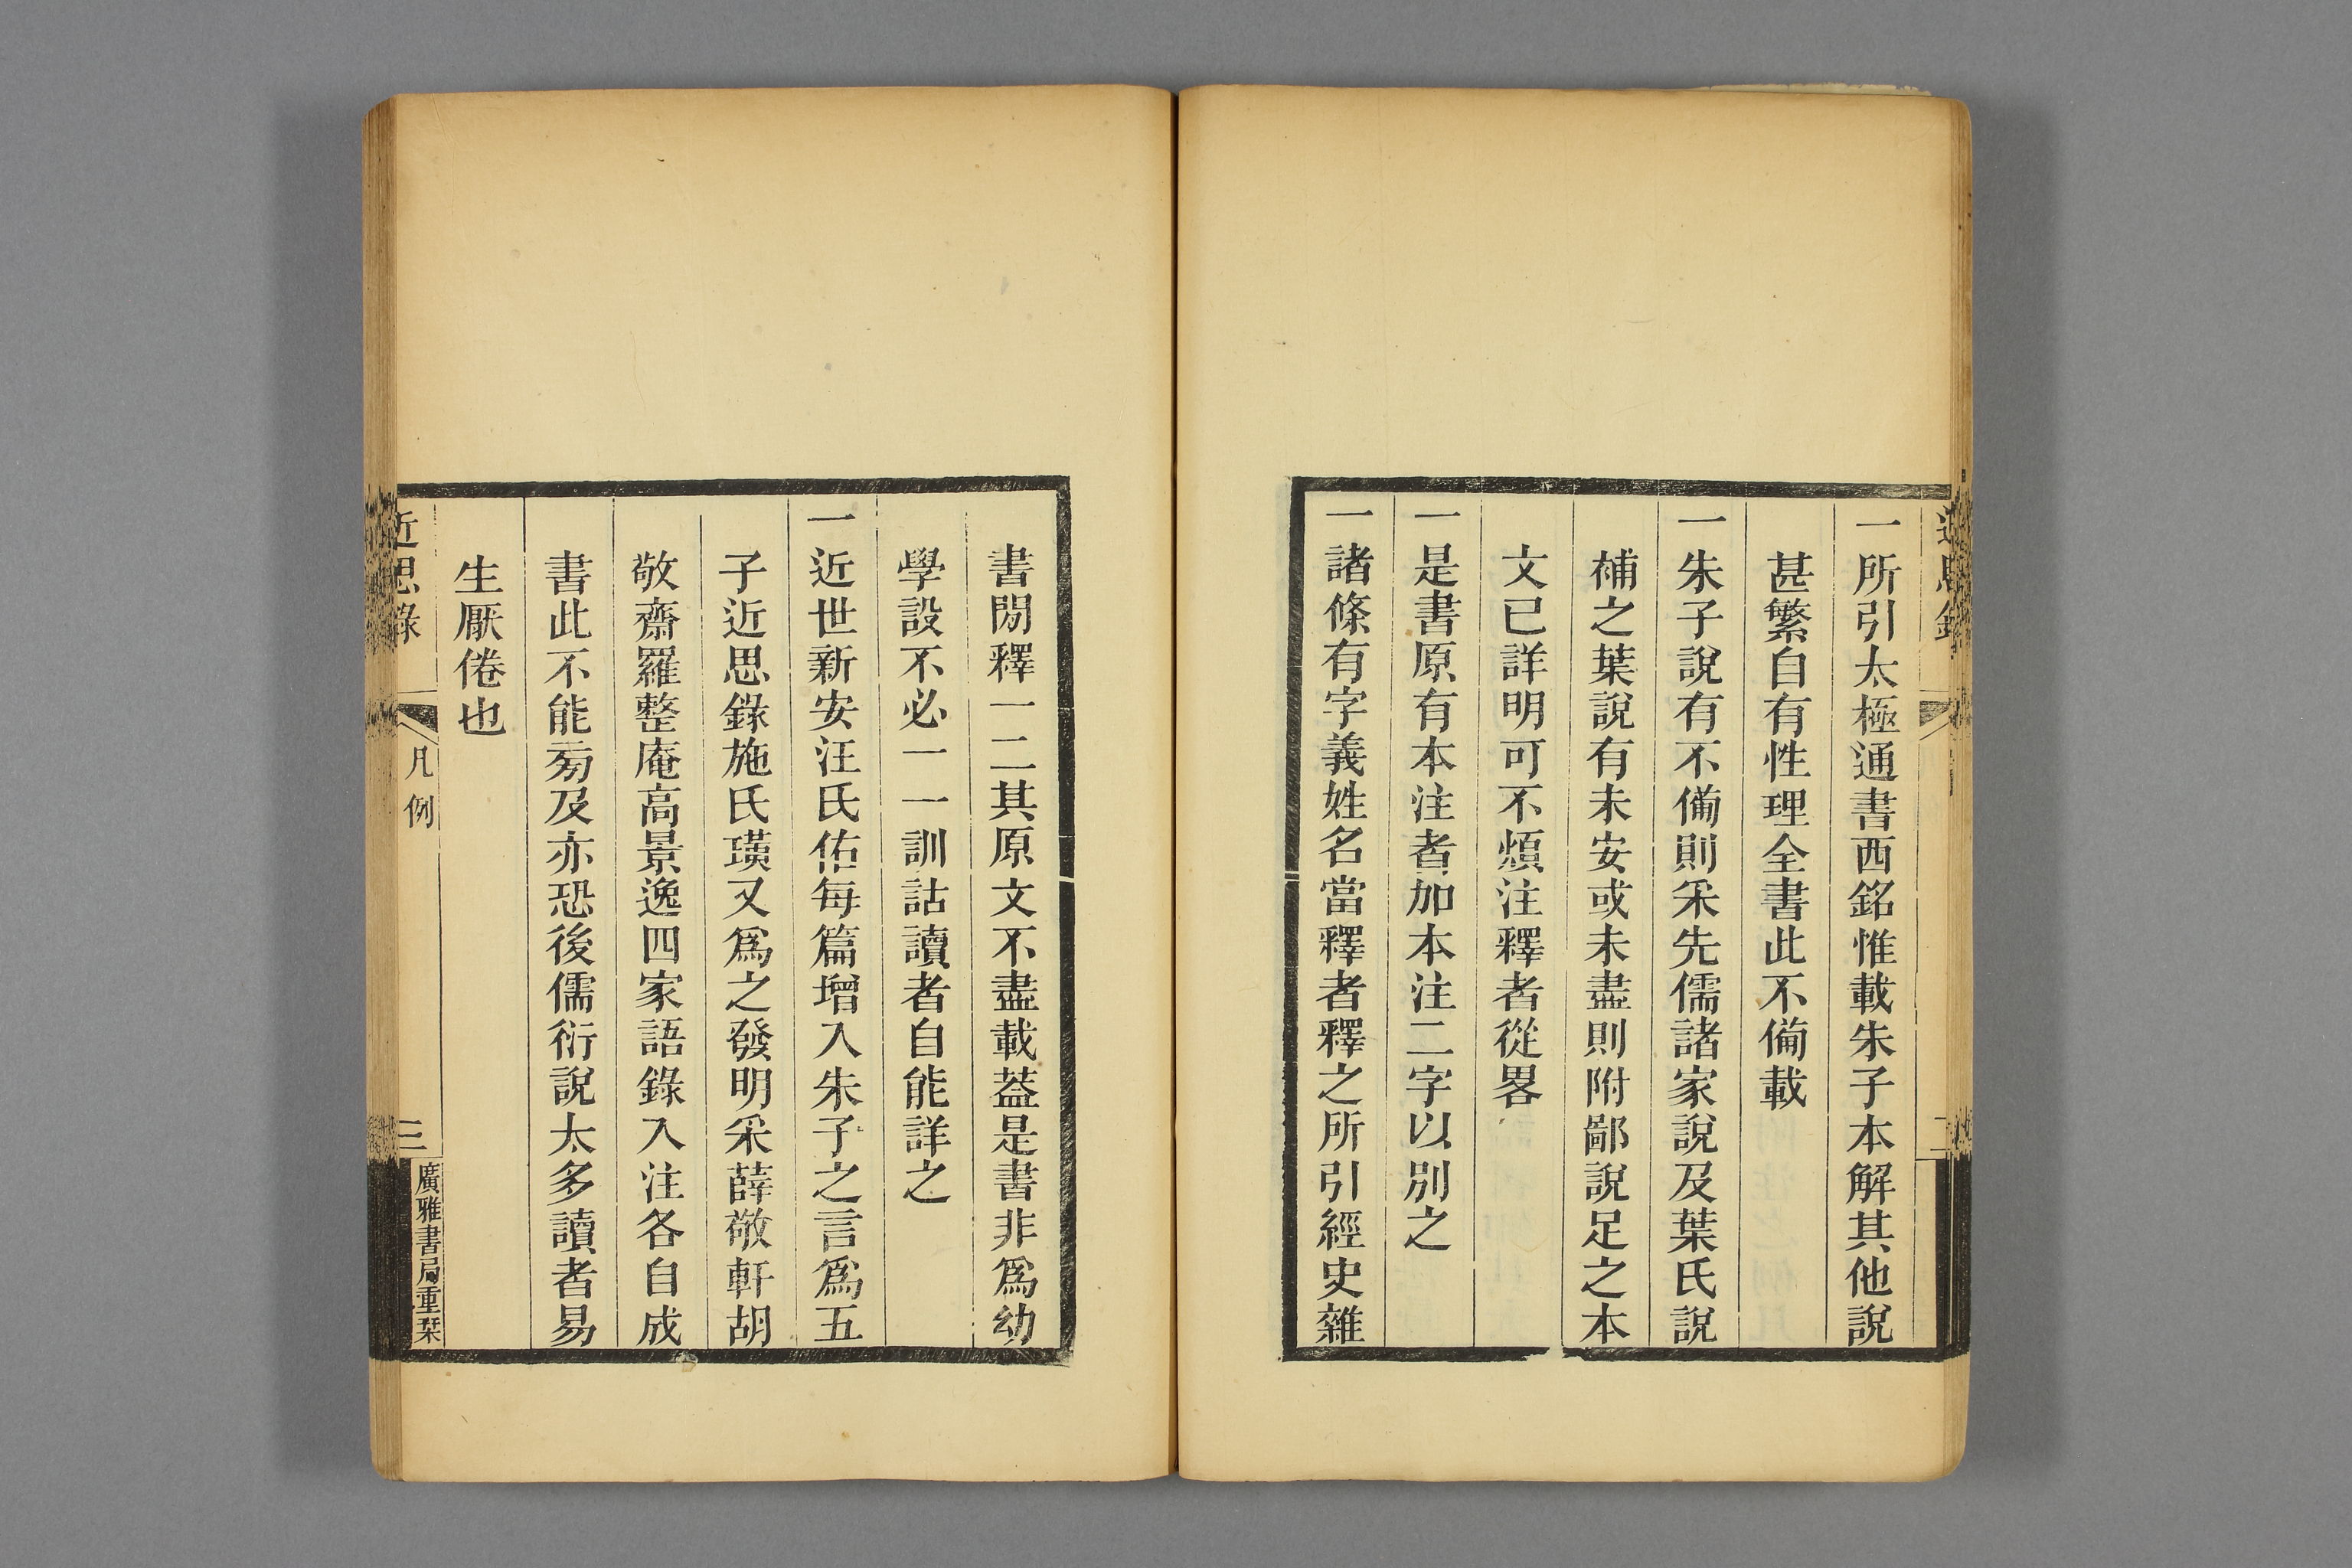 一所引太極通書西銘惟載朱子本解其他說
甚繁自有性理全書此不僃載
一朱子說有不僃則采先儒諸家說及葉氏說
補之葉說有未安或未盡則附鄙說足之本
文已詳明可不煩注釋者從畧
一是書原有本注者加本注二字以別之
一諸條有字義姓名當釋者釋之所引經史雜
書閒釋一二其原文不盡載葢是書非爲幼
學設不必一一訓詁讀者自能詳之
一近世新安汪氏佑每篇增入朱子之言爲五
子近思錄施氏璜又爲之發明采薛敬軒胡
敬齋羅整庵高景逸四家語錄入注各自成
書此不能㫄及亦恐後儒衍說太多讀者易
生厭倦也
近思錄
凡例
三
廣雅書局重栞